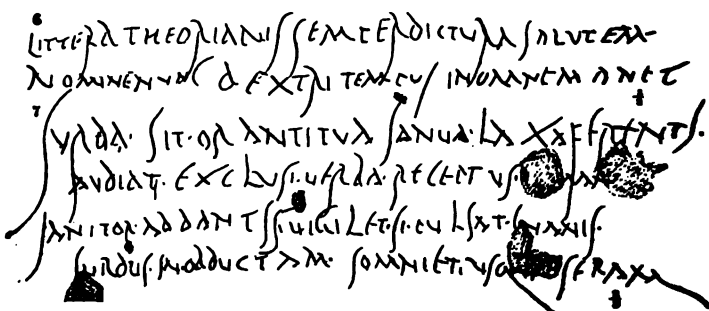 LITTERA THEORIANIS SEMPER DICTVRA SALVTEM
NOMINE NVNC DEXTRI TEMPVS IN OMNE MANET
SVRDA·SIT·ORANTI TVA IANVA·LAXA FERENTI·
AVDIAT·EXCLVSI·VERBA·RECEPTVS·
IANITOR·AD DANTIS·VIGILET·SI·PVLSAT·INANIS·
SVRDVS·IN OBDVCTAM·SOMNIET·VSQVE SERAM